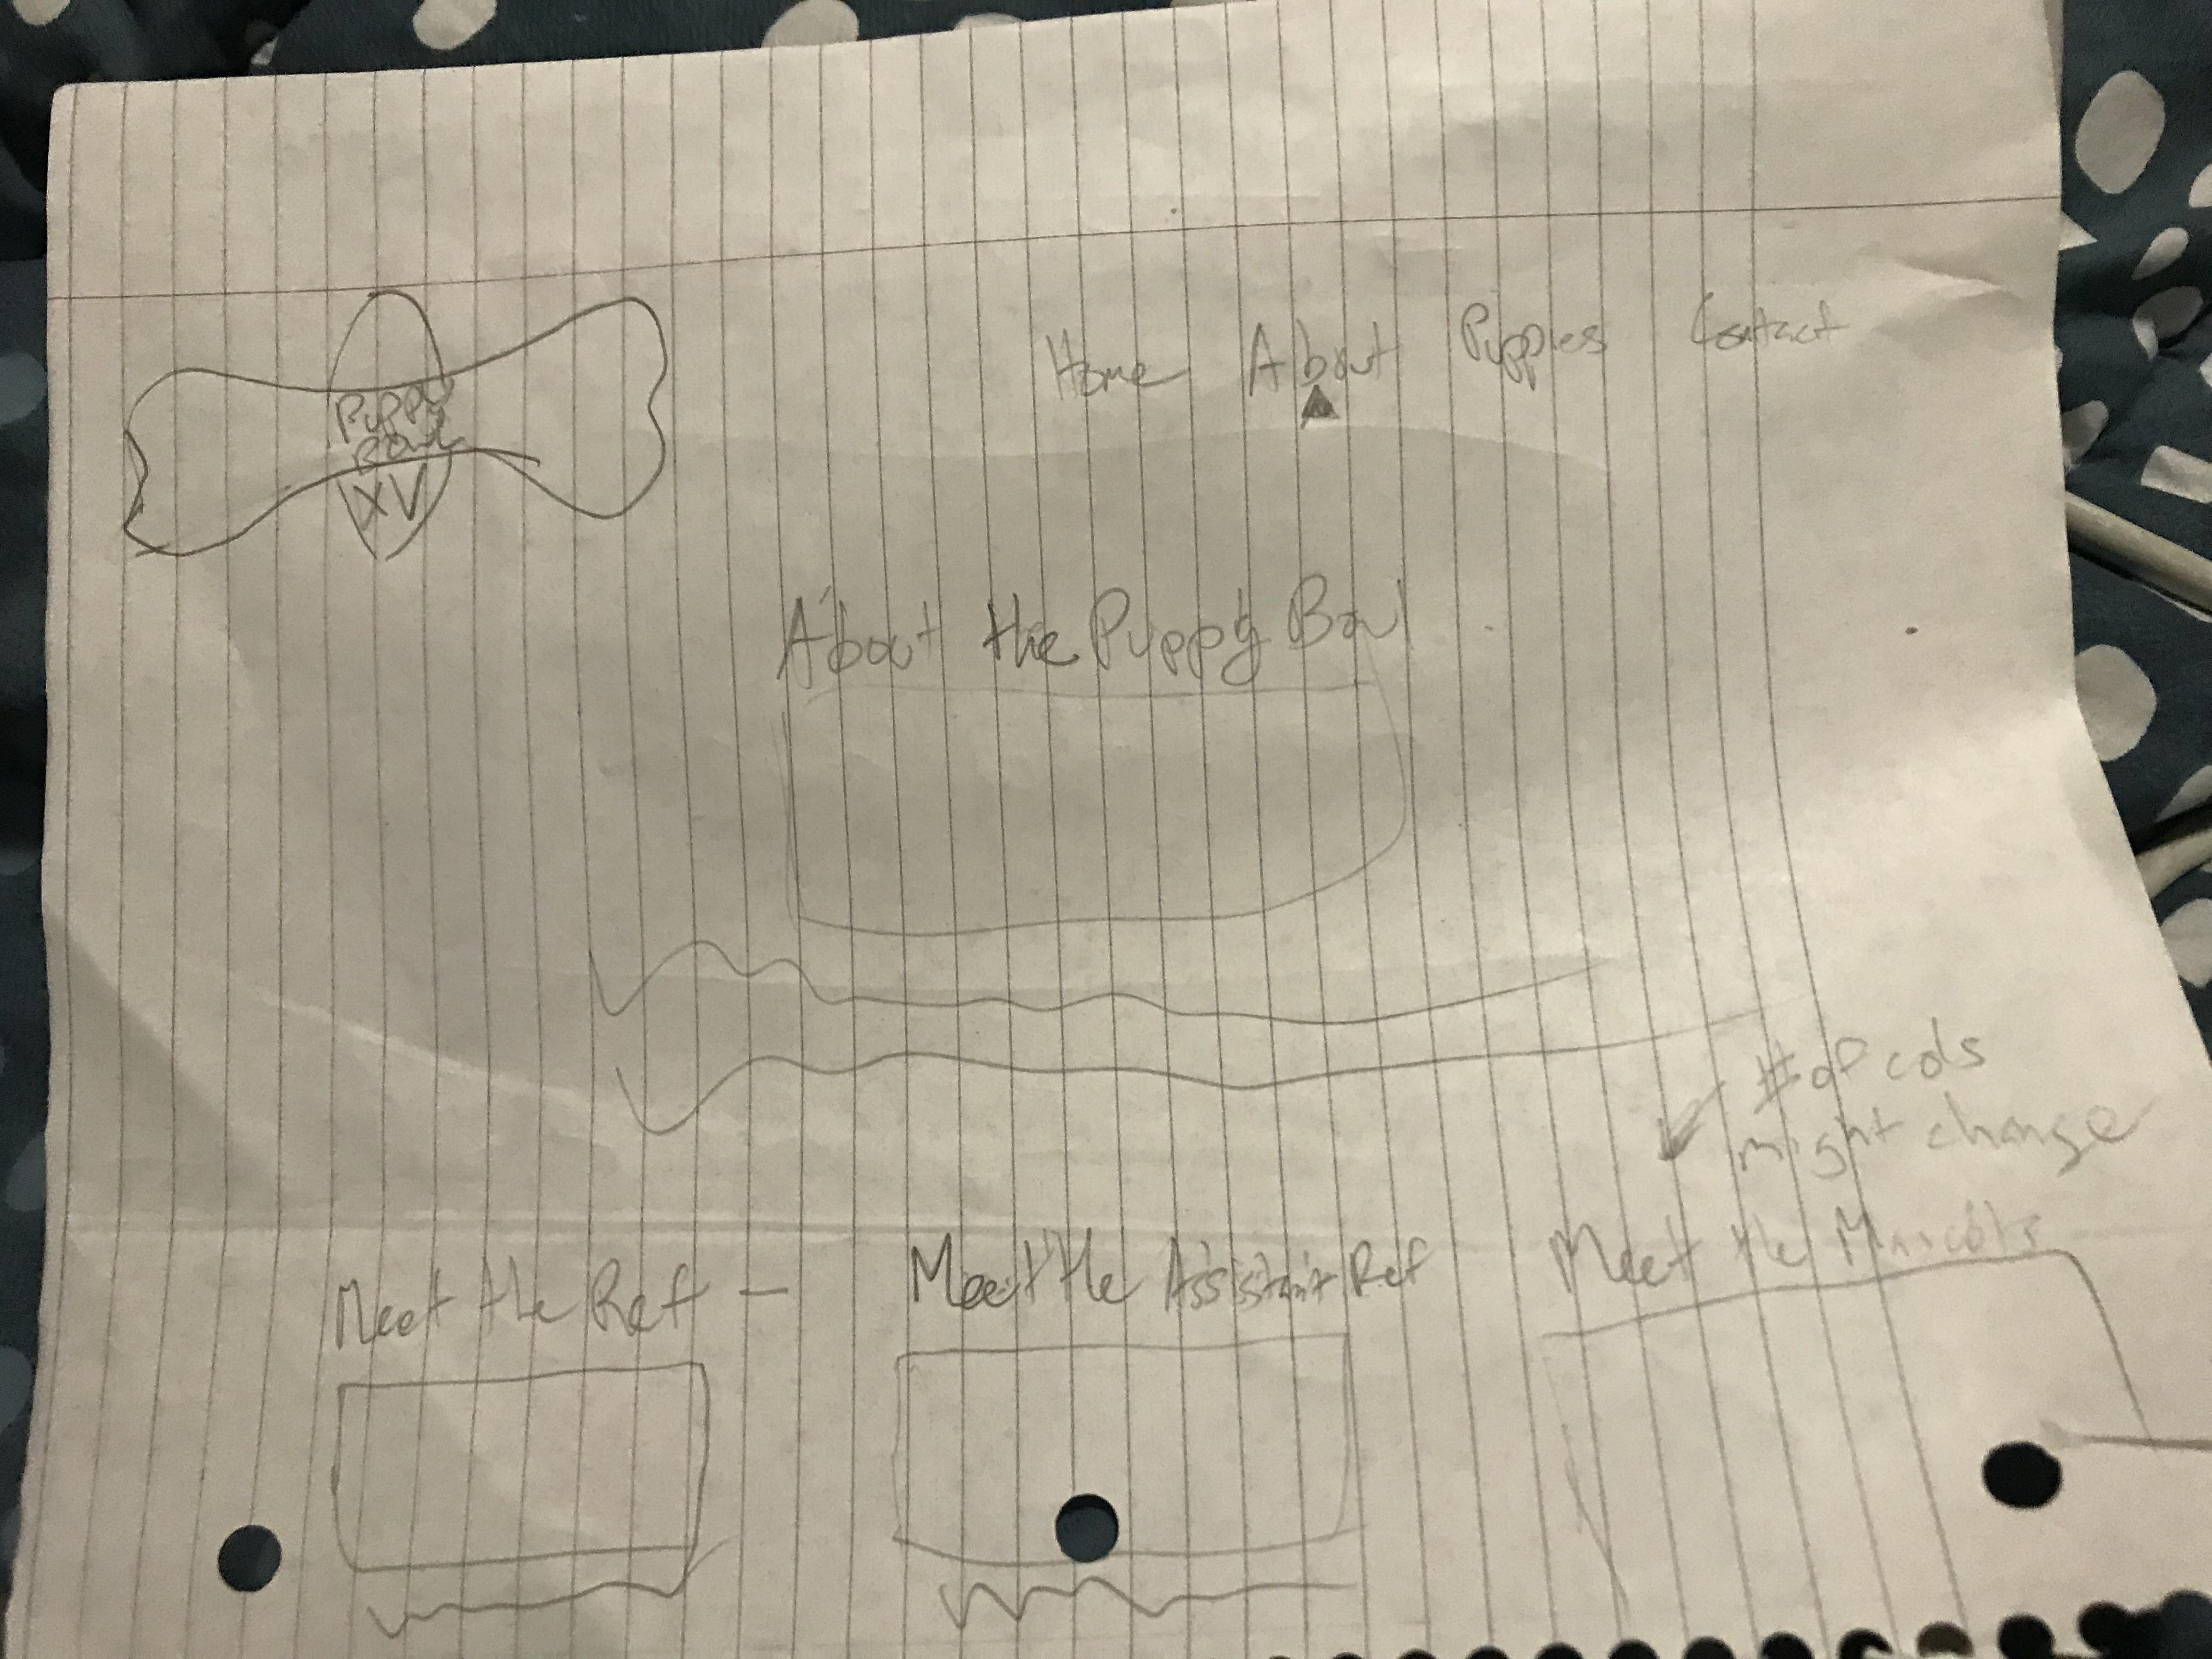 Puppy
Bowl
XV
Home About Puppies Contact
About the Puppy Bowl
# of cols
might change
Meet the Ref —
Meet the Assistant Ref
Meet the Mascots